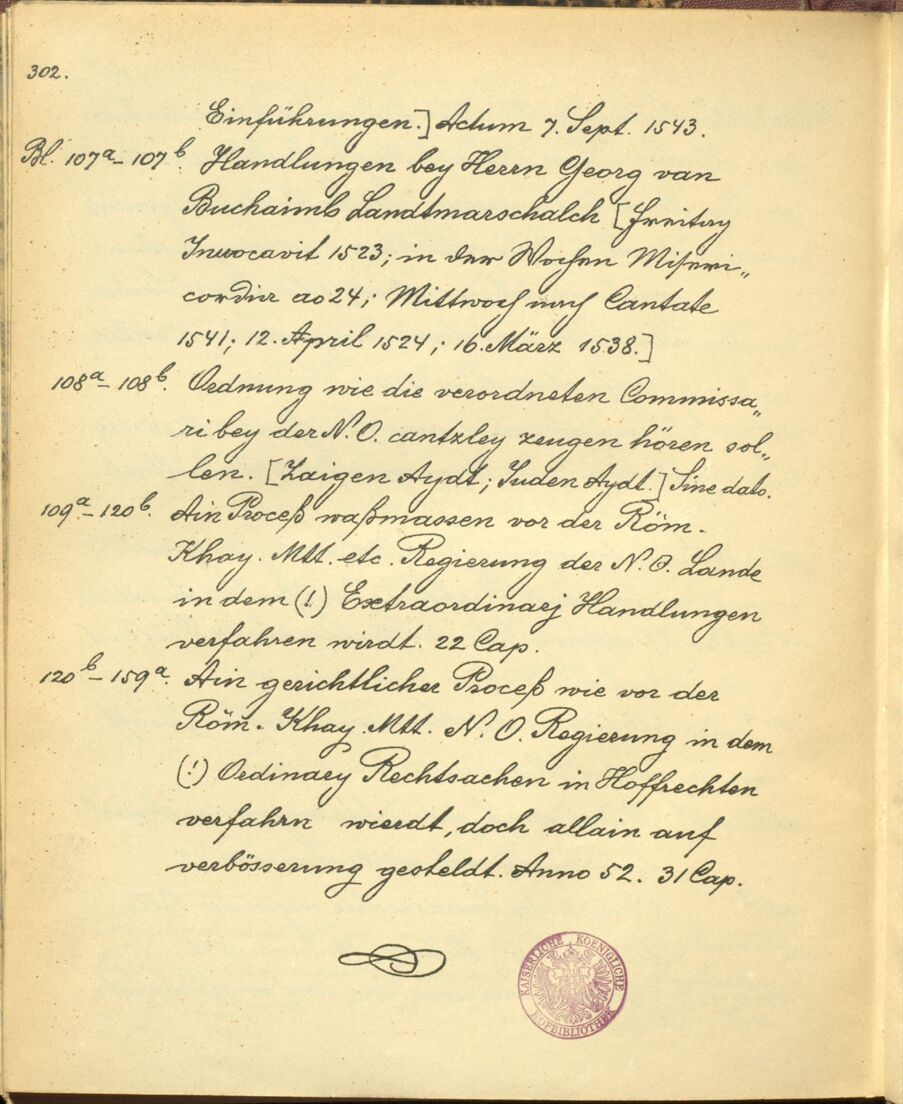 302.
Einführungen.] Actum 7. Sept. 1543.
Bl. 107a–107b. Handlungen bey Herrn Georg van
Buchaimb Landtmarschalch [Freitag
Invocavit 1523; in der Wochen Miseri„
cordiae ao 24; Mittwoch nach Cantate
1541; 12. April 1524; 16. März 1538.]
108a–108b. Ordnung wie die verordneten Commissa„
ri bey der N. O. cantzley zeugen hören sol„
len. [Zaigen Aydt; Juden Aydt.] Sine dato.
109a–120b. Ain Proceß waßmassen vor der Röm.
Khay. Mtt. etc. Regierung der N. O. Lande
in dem (!) Extraordinarj Handlungen
verfahren wirdt. 22 Cap.
120b–159a. Ain gerichtlicher Proceß wie vor der
Röm. Khay. Mtt. N. O. Regierung in dem
(!) Ordinary Rechtsachen in Hoffrechten
verfahrn wierdt, doch allain auf
verbösserung gesteldt. Anno 52. 31 Cap.
KAISERLICHE KOENIGLICHE
HOFBIBLIOTHEK